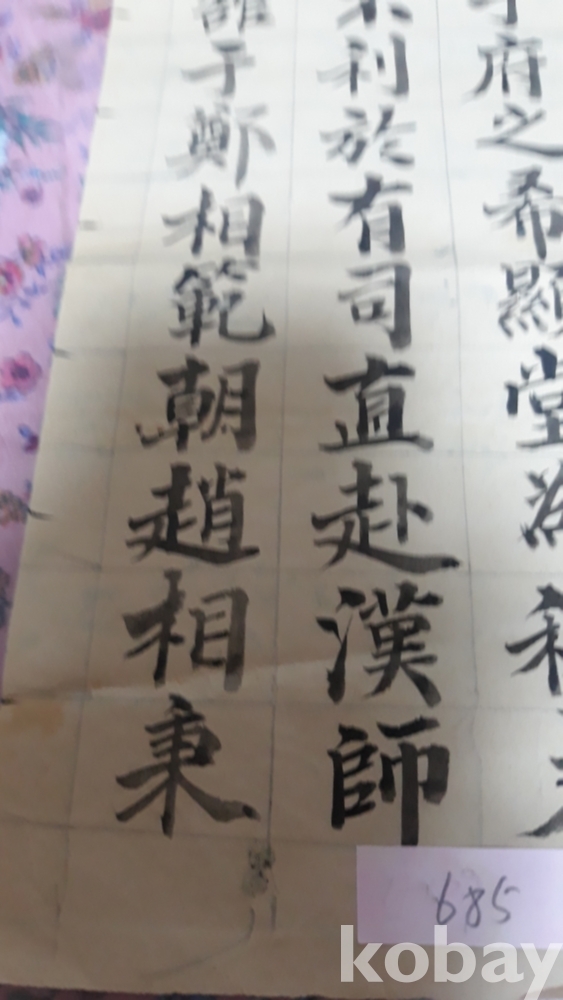 府之希顯堂
利於有司直赴漢師
于鄭相範朝趙相秉
685
kobay